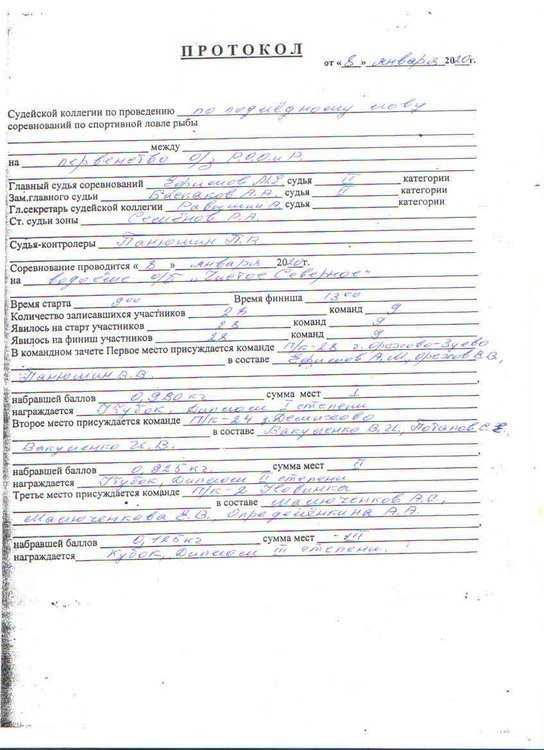 ПРОТОКОЛ
от « 8 » января 2020г.
Судейской коллегии по проведению по подлёдному лову
соревнований по спортивной ловле рыбы
между
на первенство о/з РООиР
Главный судья соревнований Ефимов М.Е. судья II категории
Зам.главного судьи Баскаков А.А. судья II категории
Гл.секретарь судейской коллегии судья категории
Ст. судьи зоны Семёнов Р.А.
Судья-контролеры Панюшин П.В.
Соревнование проводится « 8 » января 2020г.
на водоёме о/б "Чистое Северное"
Время старта 9 00 Время финиша 13 00
Количество записавшихся участников 28 команд 9
Явилось на старт участников 28 команд 9
Явилось на финиш участников 28 команд 9
В командном зачете Первое место присуждается команде П/к-28 г. Орехово-Зуево
в составе Ефимов А.М., Орехов В.В.,
Панюшин В.В.
набравшей баллов 0,980 кг сумма мест I
награждается Кубок, Диплом I степени
Второе место присуждается команде П/к-24 д. Демихово
в составе Вакуленко В.И., Потапов С.
Вакуленко И.В.
набравшей баллов 0,925 кг. сумма мест II
награждается Кубок, Диплом II степени
Третье место присуждается команде П/к-2 Новинка
в составе Масюченков А.С.,
Масюченкова Е.В., Определёнкина А.А.
набравшей баллов 0,725 кг сумма мест - III
награждается Кубок, Диплом III степени.